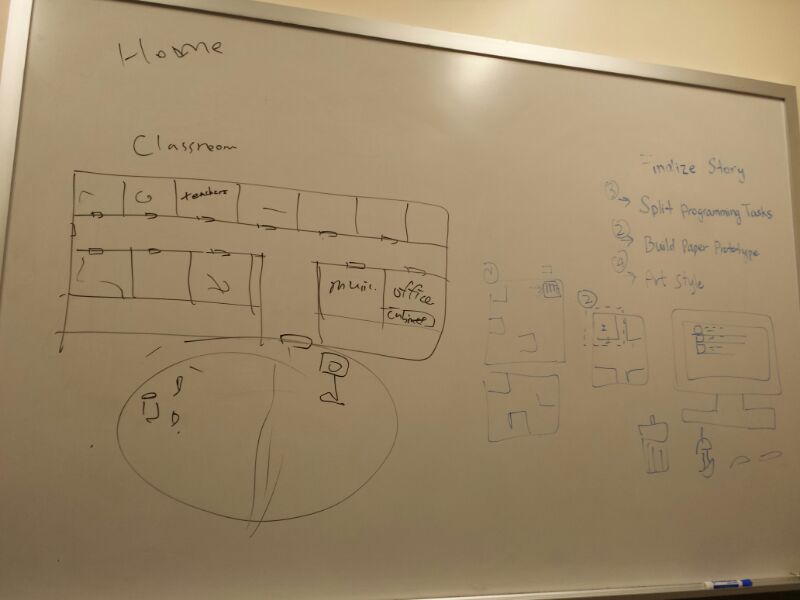 Home
Classroom
teachers
music.
office
Cabinet
Finalize Story
③ → Split Programming Tasks
② → Build Paper Prototype
→ Art Style
②